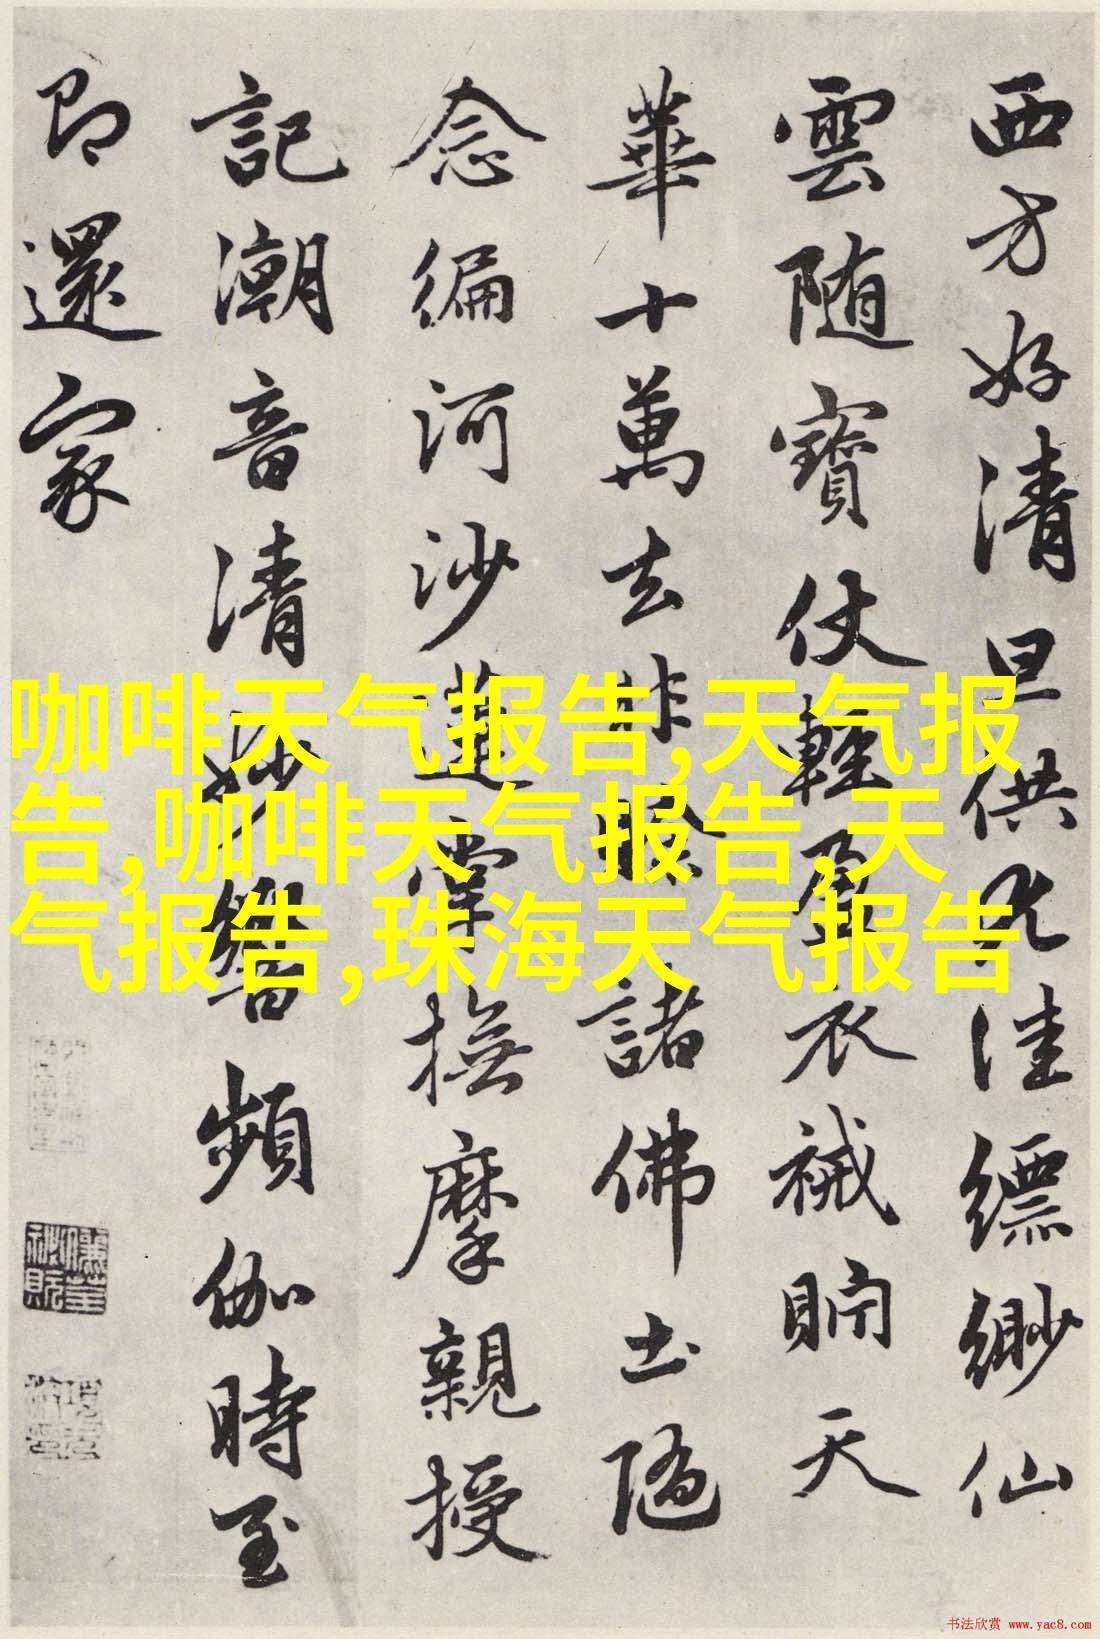 西方好清旦供尤佳縹緲仙
雲随寶仗輕盈衣裓貯天
華十萬去非賒諸佛土隨
念編河沙蓮掌撫摩親授
記潮音清妙響頻伽時至
即還家
咖啡天气报告,天气报
告,咖啡天气报告,天
气报告,珠海天气报告
书法欣赏 www.yac8.com